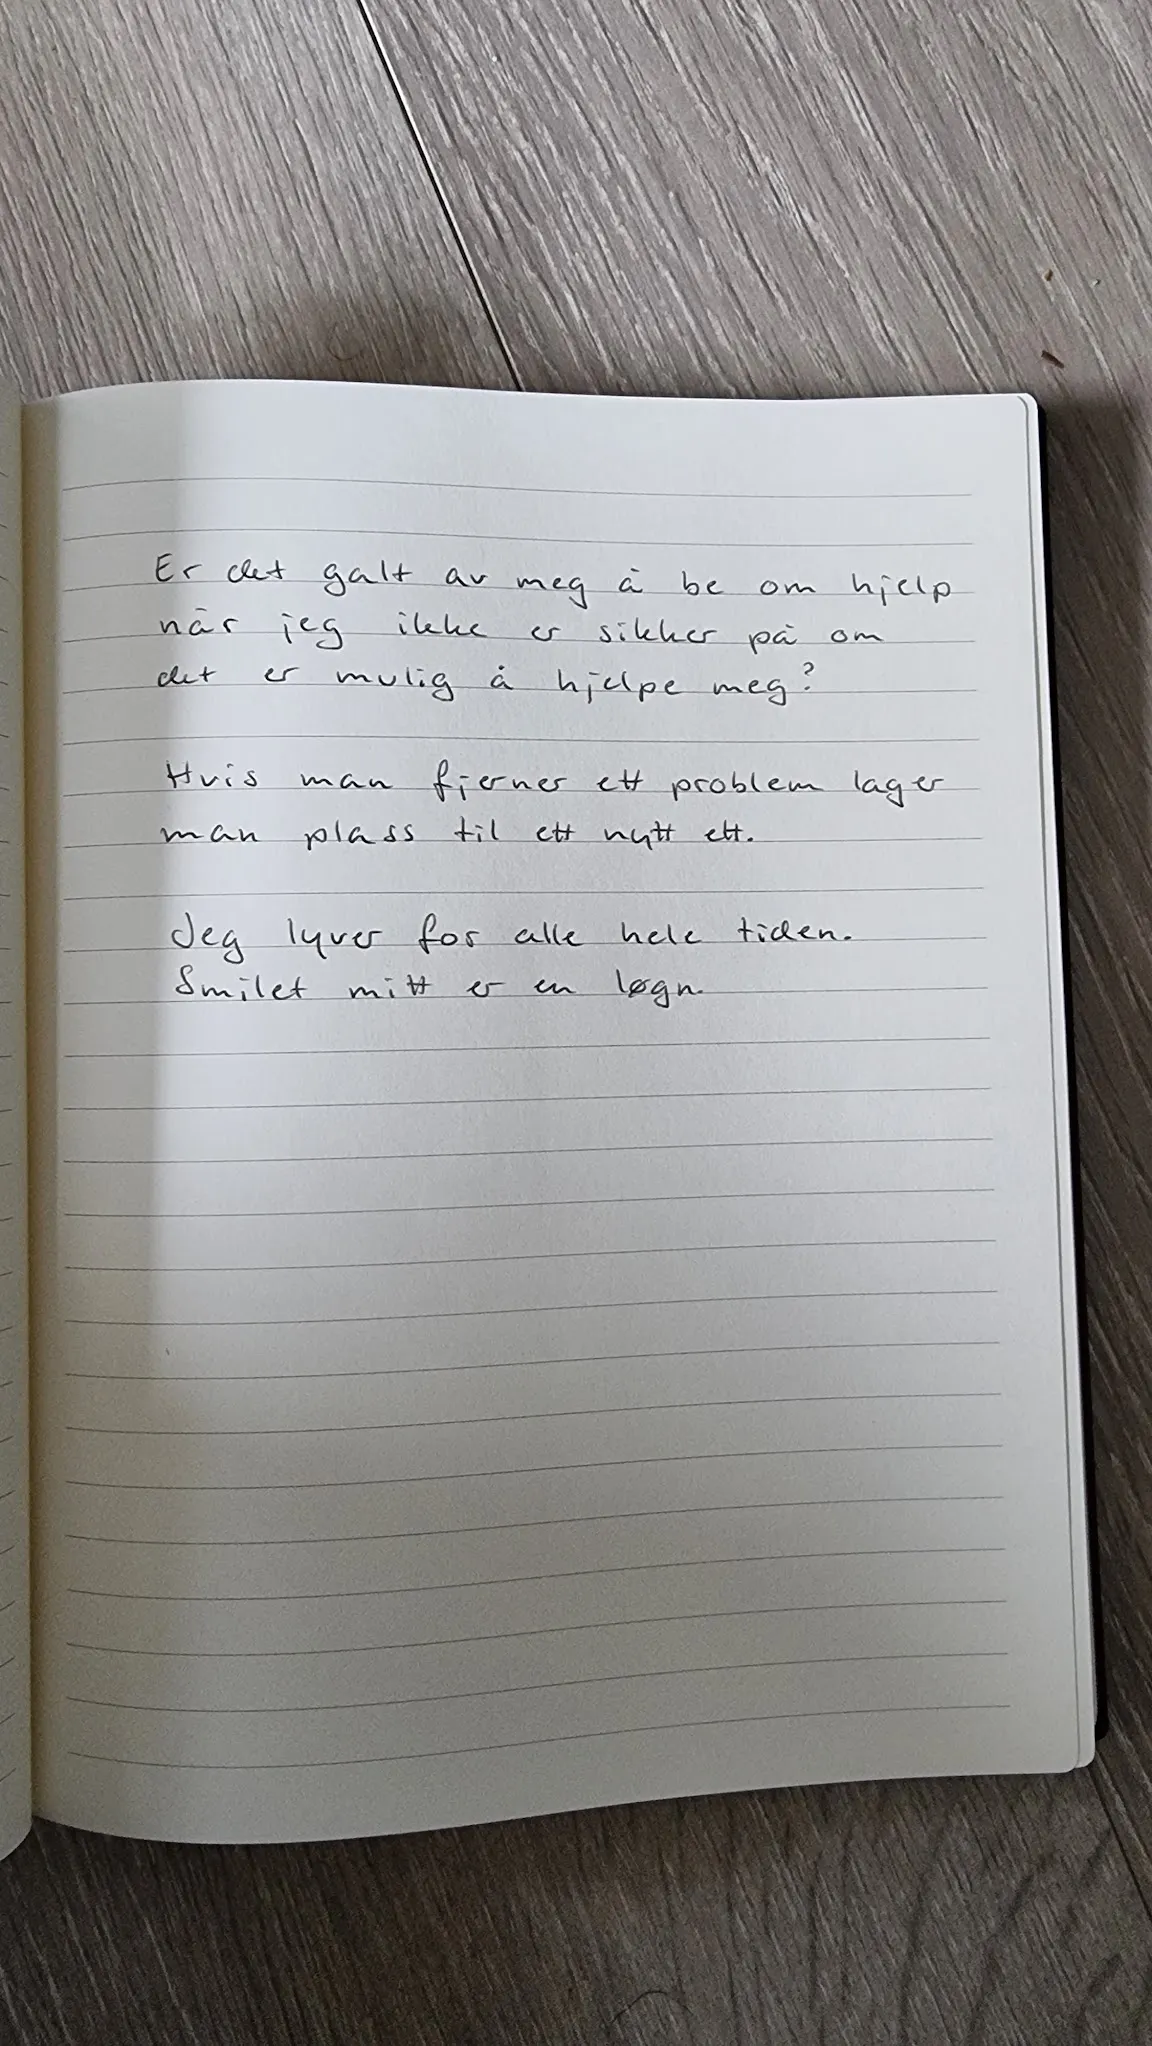 Er det galt av meg å be om hjelp
når jeg ikke er sikker på om
det er mulig å hjelpe meg?
Hvis man fjerner ett problem lager
man plass til ett nytt ett.
Jeg lyver for alle hele tiden.
Smilet mitt er en løgn.